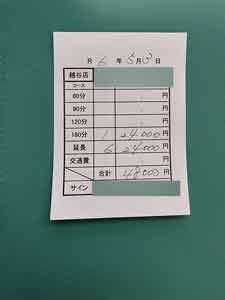 R 6 年 5月3日
越谷店
コース
60分 円
90分 円
120分 円
180分 1 24,000円
延長 6 24,000円
交通費 円
合計 48,000円
サイン